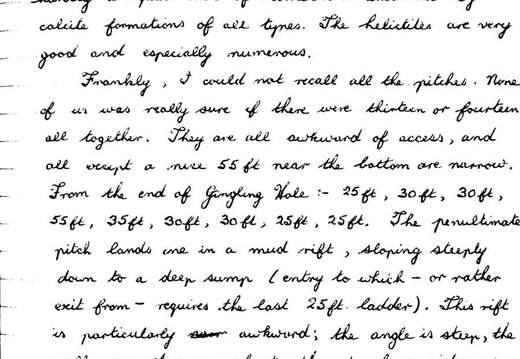 calcite formations of all types. The helictites are very
good and especially numerous.
Frankly, I could not recall all the pitches. None
of us was really sure if there were thirteen or fourteen
all together. They are all awkward of access, and
all except a nice 55 ft near the bottom are narrow.
From the end of Gingling Hole :- 25ft, 30ft, 30ft,
55ft, 35ft, 30ft, 30ft, 25ft, 25ft. The penultimate
pitch lands one in a mud rift, sloping steeply
down to a deep sump (entry to which - or rather
exit from - requires the last 25ft. ladder). This rift
is particularly awkward; the angle is steep, the